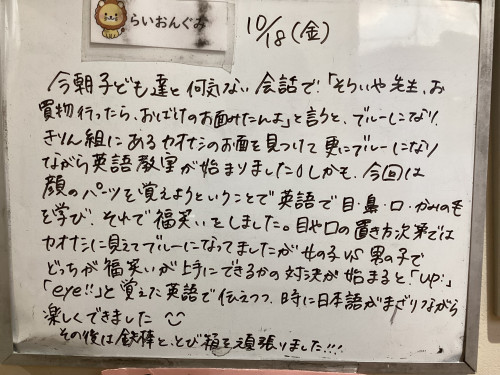 らいおんぐみ
10/18(金)
今朝子ども達と何気ない会話で「そういや先生、お
買物行ったら、おばけのお面みたんよ」と言うと、ブルーになり、
きりん組にあるカオナシのお面を見つけて更にブルーになり
ながら英語教室が始まりました。しかも、今回は
顔のパーツを覚えようということで英語で目・鼻・口・かみの毛
を学び、それで福笑いをしました。目や口の置き方次第では
カオナシに見えてブルーになってましたが女の子VS男の子で
どっちが福笑いが上手にできるかの対決が始まると「up!」
「eye!!」と覚えた英語で伝えつつ、時に日本語がまざりながら
楽しくできました
その後は鉄棒と、とび箱を頑張りました!!!